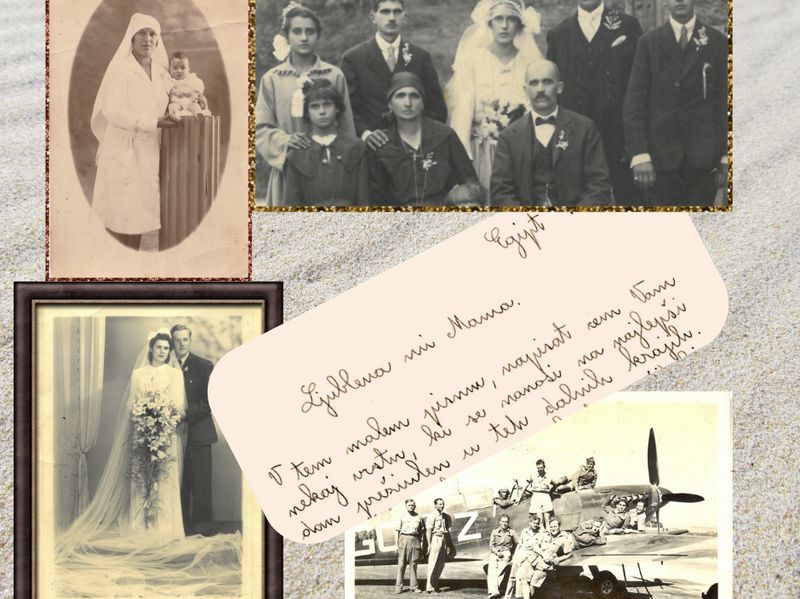 Egipt
Ljublena mi Mama.
V tem malem pismu, napisat sem Vam
nekaj vrstic, ki se nanaši na najlepši
dan preživlen u teh dalnih krajih.
Z